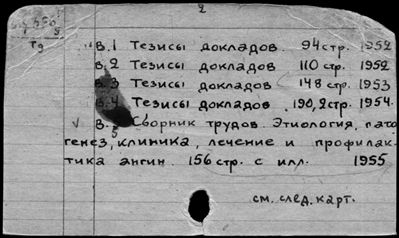 2
в.1 Тезисы докладов. 94 стр. 1952
в.2 Тезисы докладов 110 стр. 1952
в.3 Тезисы докладов 148 стр. 1953
в.4 Тезисы докладов. 190,2 стр. 1954.
v в.5 Сборник трудов. Этиология, пато
генез, клиника, лечение и профилак-
тика ангин. 156 стр. с илл. 1955
см. след. карт.